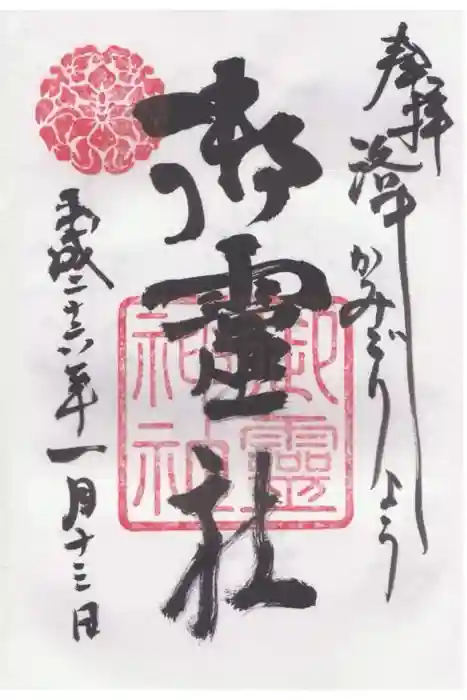 奉拝
洛中 かみごりよう
御霊社
御霊神社
平成二十六年一月十三日